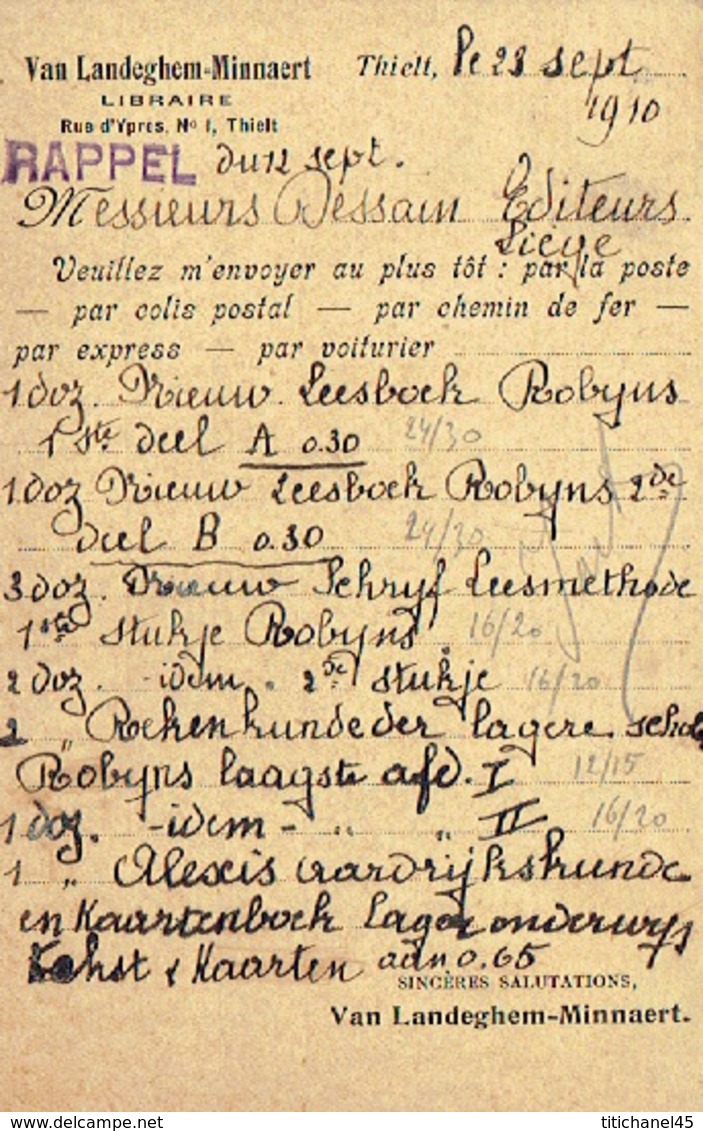 Van Landeghem-Minnaert
LIBRAIRE
Rue d'Ypres, No 1, Thielt
Thielt, le 23 sept 1910
RAPPEL du 12 sept.
Messieurs Dessain Editeurs
Liége
Veuillez m'envoyer au plus tôt : par la poste
— par colis postal — par chemin de fer —
par express — par voiturier
1 doz. Nieuw Leesboek Robyns
1ste deel A 0.30 24/30
1 doz Nieuw Leesboek Robyns 2de
deel B 0.30 24/30
3 doz. Nieuw Schryf Leesmethode
1ste stukje Robyns 16/20
2 doz. -idem. 2de stukje 16/20
2 " Rekenkunde der lagere school
Robyns laagste afd. I 12/15
1 doz. -idem- " " II 16/20
1 " Alexis aardrijkskunde
en Kaartenboek Lager onderwys
Tekst & Kaarten aan 0.65
SINCÈRES SALUTATIONS,
Van Landeghem-Minnaert.
www.delcampe.net
titichanel45